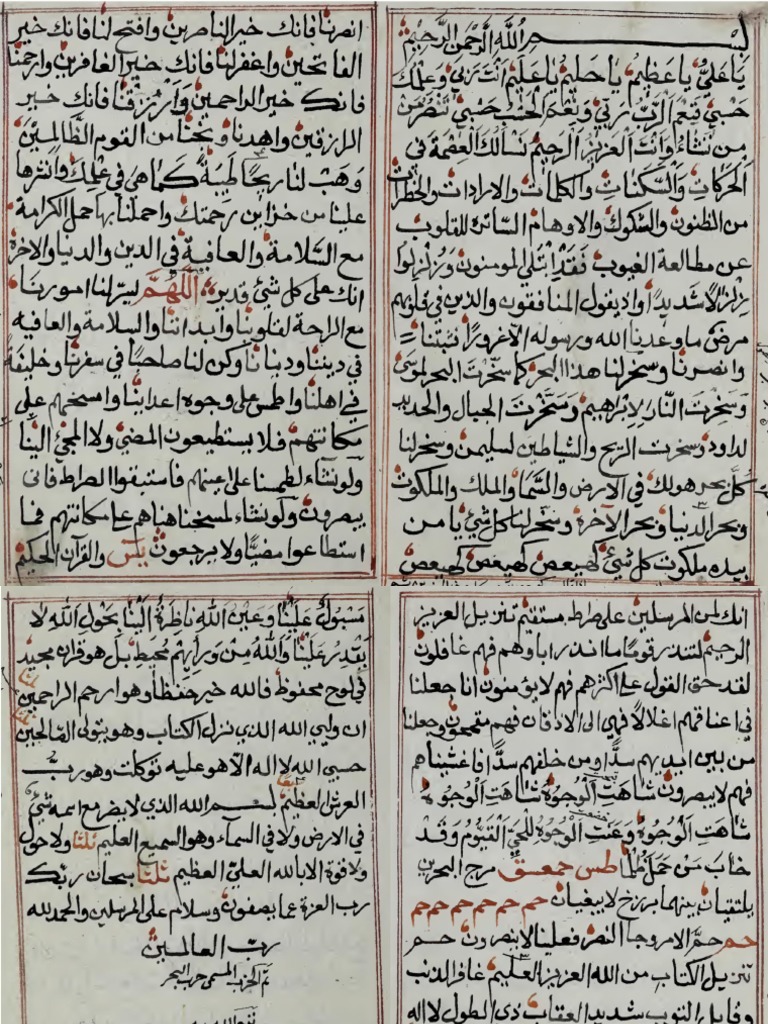 بسم الله الرحمن الرحيم
يا علي يا عظيم يا حليم يا عليم انت ربي وعلمك
حسبي فنعم الرب ربي ونعم الحسب حسبي تنصر من
من تشاء وانت العزيز الرحيم نسالك العصمة في
الحركات والسكنات والكلمات والارادات والخطرات
من الظنون والشكوك والاوهام الساترة للقلوب
عن مطالعة الغيوب فقد ابتلي المومنون وزلزلوا
زلزالا شديدا واذ يقول المنافقون والذين في قلوبهم
مرض ما وعدنا الله ورسوله الا غرورا فثبتنا
وانصرنا وسخر لنا هذا البحر كما سخرت البحر لموسى
وسخرت النار لابراهيم وسخرت الجبال والحديد
لداود وسخرت الريح والشياطين لسليمن وسخر لنا
كل بحر هو لك في الارض والسما والملك والملكوت
وبحر الدنيا وبحر الاخرة وسخر لنا كل شئ يا من
بيده ملكوت كل شئ كهيعص كهيعص كهيعص
انصرنا فانك خير الناصرين وافتح لنا فانك خير
الفاتحين واغفر لنا فانك خير الغافرين وارحمنا
فانك خير الراحمين وارزقنا فانك خير
الرازقين واهدنا ونجنا من القوم الظالمين
وهب لنا ريحا طيبة كما هي في علمك وانشرها
علينا من خزاين رحمتك واحملنا بها حمل الكرامة
مع السلامة والعافية في الدين والدنيا والاخرة
انك على كل شئ قدير اللهم يسر لنا امورنا
مع الراحة لقلوبنا وابداننا والسلامة والعافيه
في ديننا ودنيانا وكن لنا صاحبا في سفرنا وخليفة
في اهلنا واطمس على وجوه اعداينا وامسخهم على
مكانتهم فلا يستطيعون المضي ولا المجئ الينا
ولو نشاء لطمسنا على اعينهم فاستبقوا الصراط فانى
يبصرون ولو نشاء لمسخناهم على مكانتهم فما
استطاعوا مضيا ولا يرجعون يس والقرآن الحكيم
انك لمن المرسلين على صراط مستقيم تنزيل العزيز
الرحيم لتنذر قوما ما انذر اباوهم فهم غافلون
لقد حق القول على اكثرهم فهم لا يؤمنون انا جعلنا
في اعناقهم اغلالا فهي الى الاذقان فهم مقمحون وجعلنا
من بين ايديهم سدا ومن خلفهم سدا فاغشيناهم
فهم لا يبصرون شاهت الوجوه شاهت الوجوه
شاهت الوجوه وعنت الوجوه للحي القيوم وقد
خاب من حمل ظلما طس حمعسق مرج البحرين
يلتقيان بينهما برزخ لا يبغيان حم حم حم حم حم حم
حم حم الامر وجا النصر فعلينا لا ينصرون حم
تنزيل الكتاب من الله العزيز العليم غافر الذنب
وقابل التوب شديد العقاب ذي الطول لا اله
مسبول علينا وعين الله ناظرة الينا بحول الله لا
يقدر علينا والله من ورايهم محيط بل هو قران مجيد
في لوح محفوظ فالله خير حفظا وهو ارحم الراحمين
ان وليي الله الذي نزل الكتاب وهو يتولى الصالحين
حسبي الله لا اله الا هو عليه توكلت وهو رب
العرش العظيم بسم الله الذي لا يضر مع اسمه شئ
في الارض ولا في السماء وهو السميع العليم ثلثا ولا حول
ولا قوة الا بالله العلي العظيم ثلثا سبحان ربك
رب العزة عما يصفون وسلام على المرسلين والحمد لله
رب العالمين
تم الحزب المسمى حزب البحر